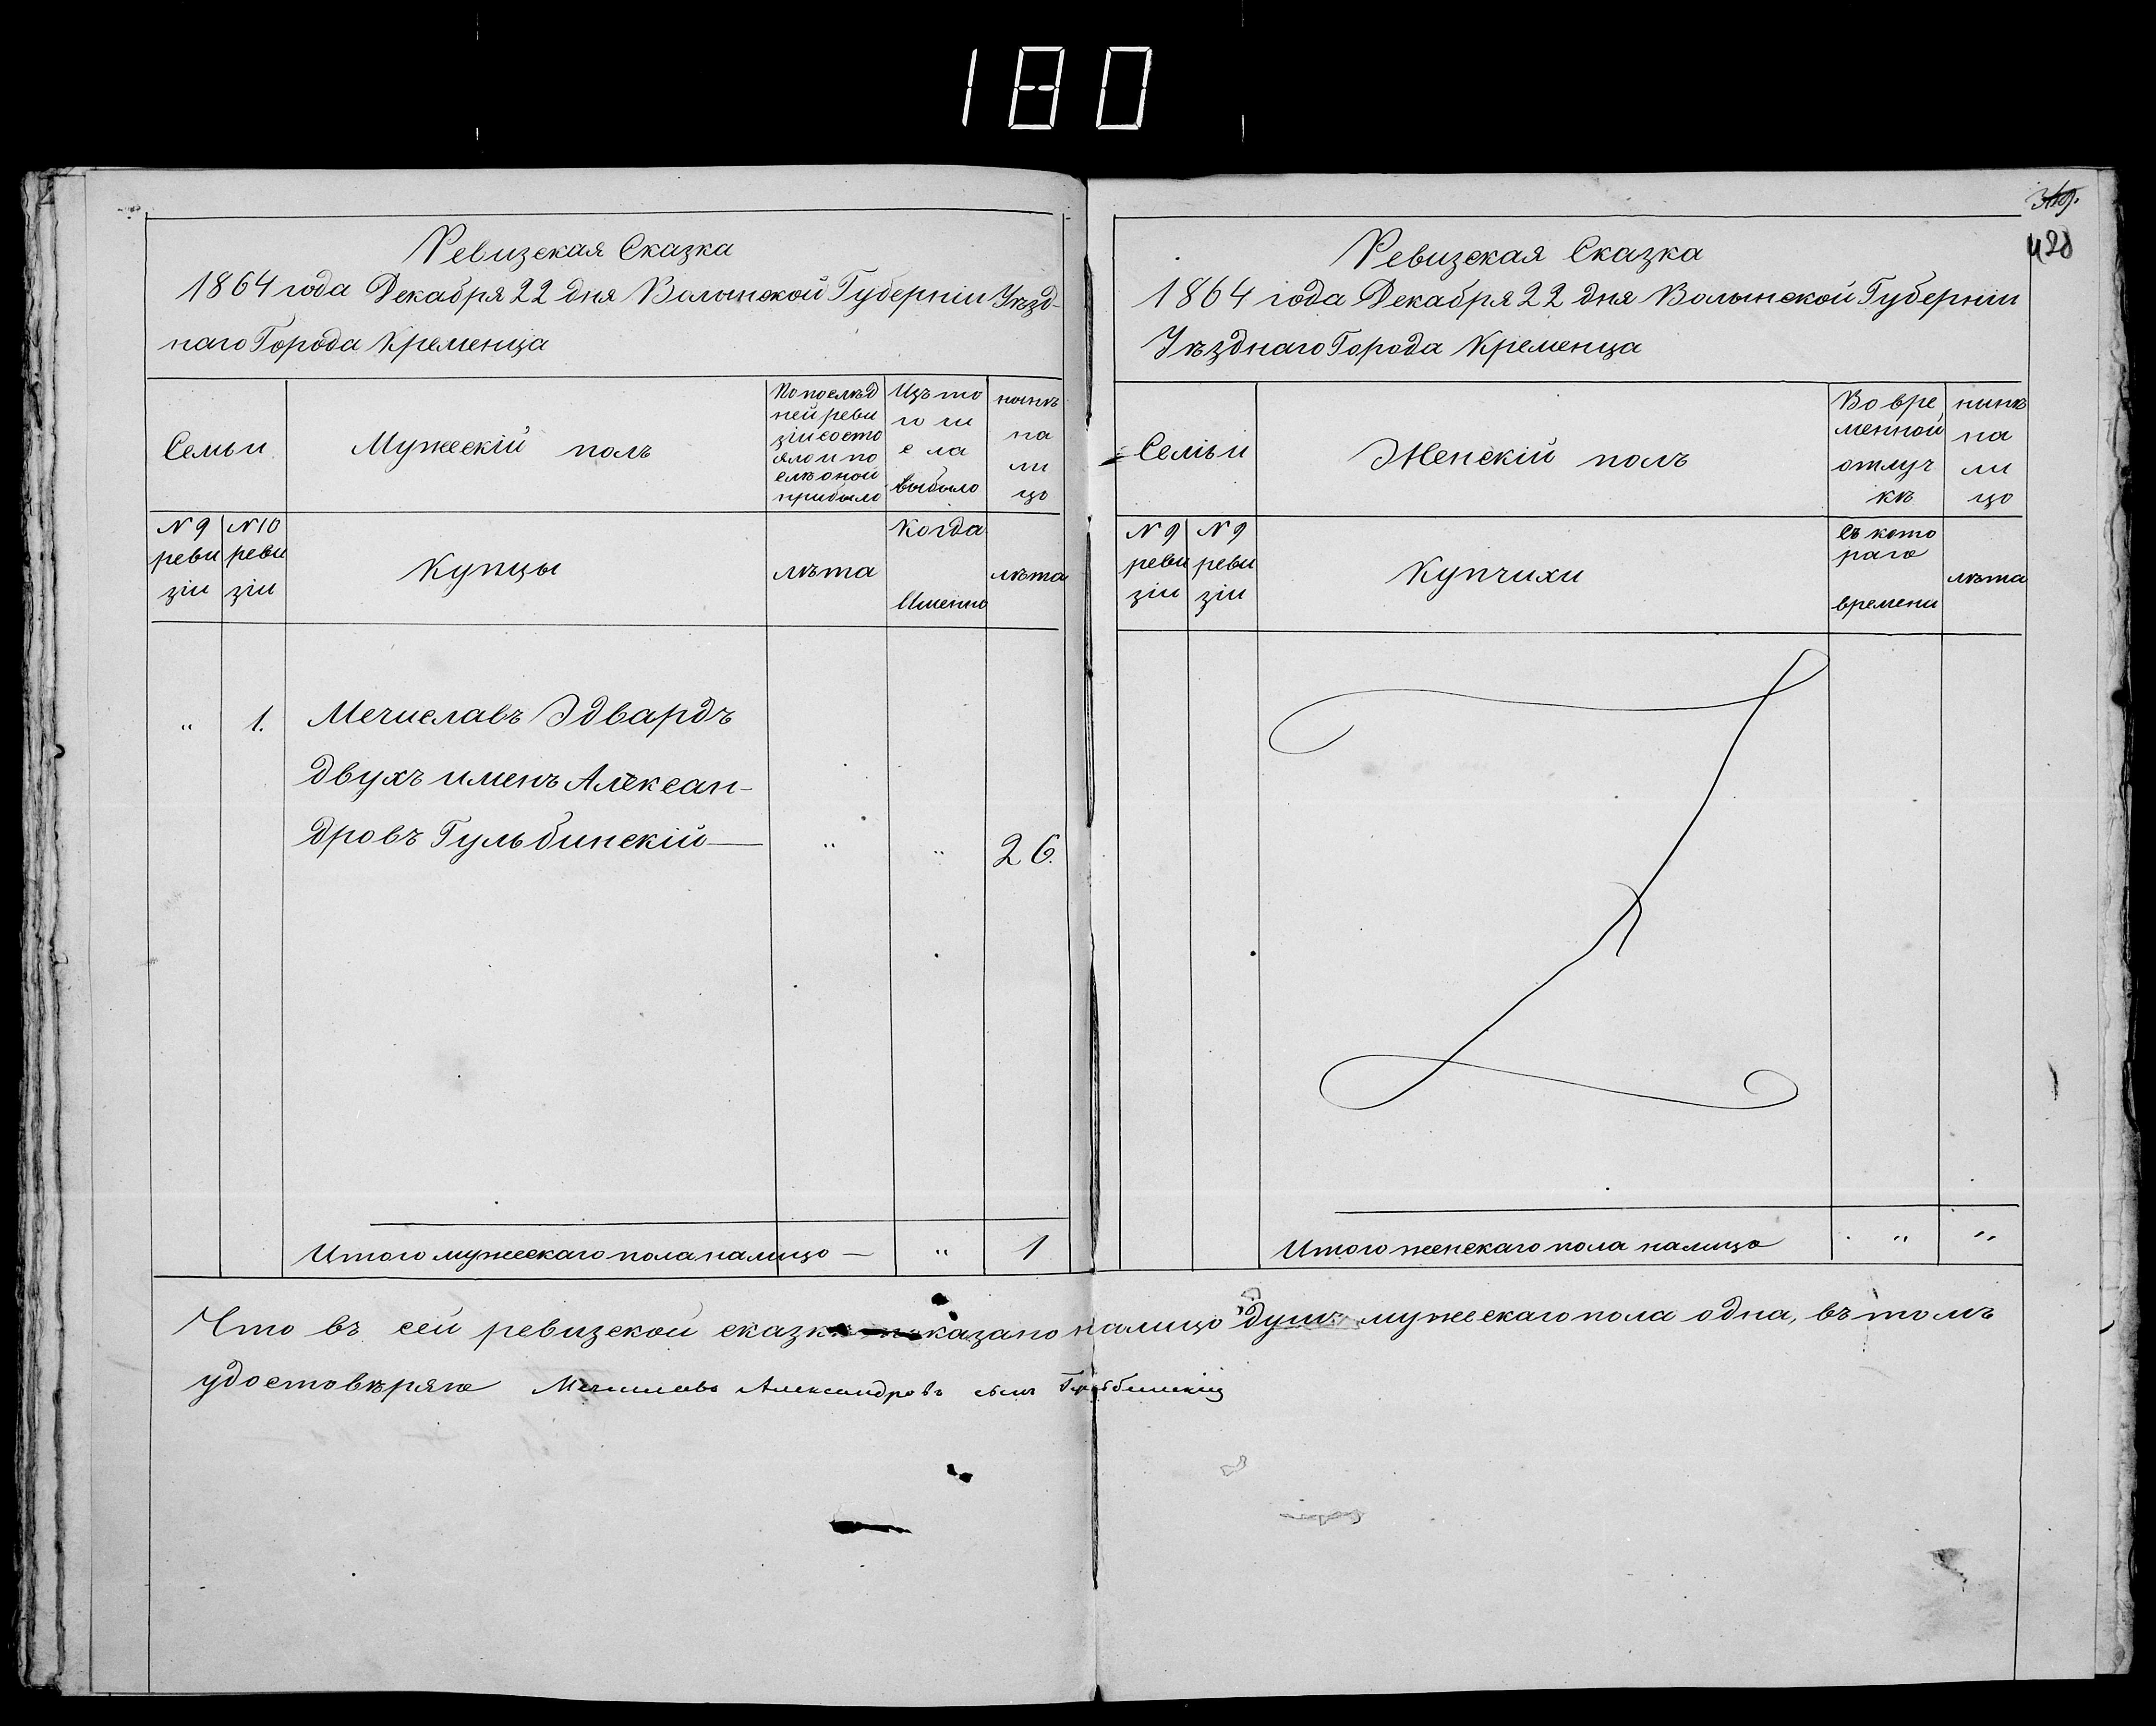 180
Ревизская Сказка
1864 года Декабря 22 дня Волынской Губерніи Уѣзд-
наго Города Кременца
Семьи
Мужескій полъ
По послѣд
ней реви
зіи состо
яло и по
слѣ оной
прибыло
Изъ то
го чи
с ла
выбыло
нынѣ
на
ли
цо
N 9
реви
зіи
N 10
реви
зіи
Купцы
лѣта
Когда
Именно
лѣта
" 1. Мечиславъ Эдвардъ
двухъ именъ Алексан-
дровъ Гульбинскій — " " 26.
Итого мужескаго пола налицо — " 1
349.
428
Ревизская Сказка
1864 года Декабря 22 дня Волынской Губерніи
Уѣзднаго Города Кременца
Семьи
Женскій полъ
Во вре
менной
отлуч
кѣ
нынѣ
на
ли
цо
N 9
реви
зіи
N 9
реви
зіи
Купчихи
Съ кото
раго
времени
лѣта
Итого женскаго пола налицо " "
Что въ сей ревизской сказкѣ показано налицо душъ мужескаго пола одна, въ томъ
удостовѣряю Мечиславъ Александровъ сынъ Гульбинскій